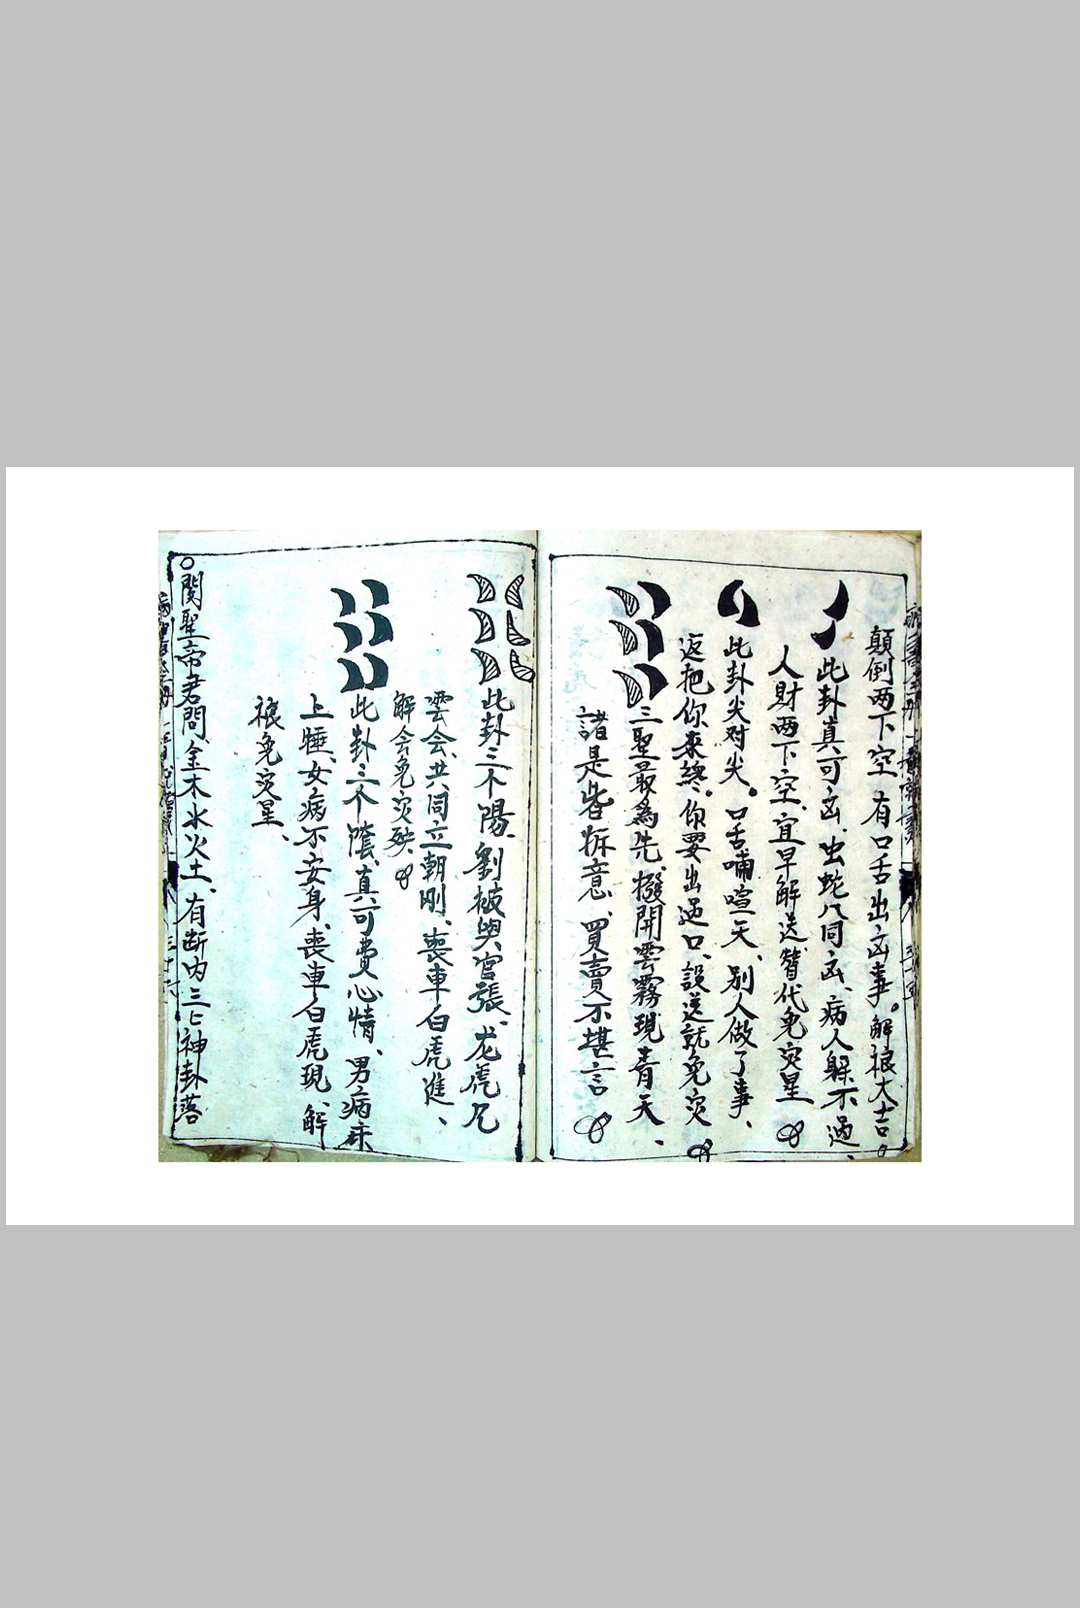 顛倒两下空 有口舌出凶事。解禳大吉。
此卦真可凶、出蛇八同凶、病人躲不过、
人財两下空、宜早解送替代免灾星
此卦尖对尖。口舌哺喧天、别人做了事、
返把你来終。你要出过口、設送就免灾
三聖最為先、撥開雲霧現青天、
諸是皆拆意、買賣不堪言
此卦三个陽、劉被與官張、龙虎凡
雲会、共同立朝剛、喪車白虎進、
解会免灾殃
此卦三个隂、真可費心情、男病床
上睡、女病不安身、喪車白虎現、解
禳免灾星、
○関聖帝君問、金木水火土、有断内三匕神卦落